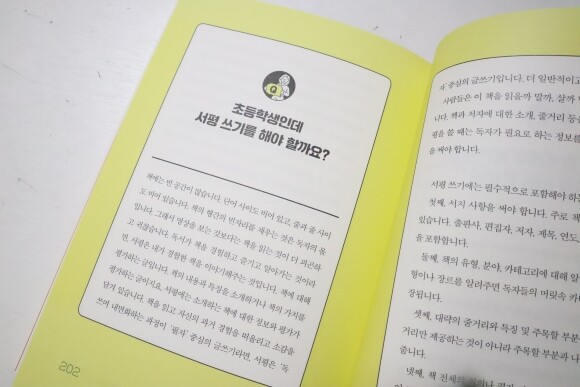 Q
초등학생인데
서평 쓰기를 해야 할까요?
책에는 빈 공간이 많습니다. 단어 사이도 비어 있고, 줄과 줄 사이
도 비어 있습니다. 책의 행간의 빈자리를 채우는 것은 독자의 몫
입니다. 그래서 영상을 보는 것보다는 책을 읽는 것이 더 피곤하
고 귀찮습니다. 독서가 책을 경험하고 즐기고 알아가는 것이라
면, 서평은 내가 경험한 책을 이야기해주는 것입니다. 책에 대해
평가하는 글입니다. 책의 내용과 특징을 소개하거나 책의 가치를
평가하는 글이기요. 서평에는 소개하는 책에 대한 정보와 평가가
담겨 있습니다. 책을 읽고 자신의 과거 경험을 떠올리고 소감을
쓰며 내면화하는 과정이 '필자' 중심의 글쓰기라면, 서평은 '독
202
자' 중심의 글쓰기입니다. 더 일반적이고
사람들은 이 책을 읽을까 말까, 살까
니다. 책과 저자에 대한 소개, 줄거리 등
평을 쓸 때는 독자가 필요로 하는 정보를
을 써야 합니다.
서평 쓰기에는 필수적으로 포함해야 하는
첫째, 서지 사항을 써야 합니다. 주로 책
있습니다. 출판사, 편집자, 저자, 제목, 연도,
을 포함합니다.
둘째, 책의 유형, 분야, 카테고리에 대해 알
형이나 장르를 알려주면 독자들의 머릿속 카
장됩니다.
셋째, 대략의 줄거리와 특징 및 주목할 부분
거리만 제공하는 것이 아니라 주목할 부분과 나
줍니다.
넷째, 책 전체의